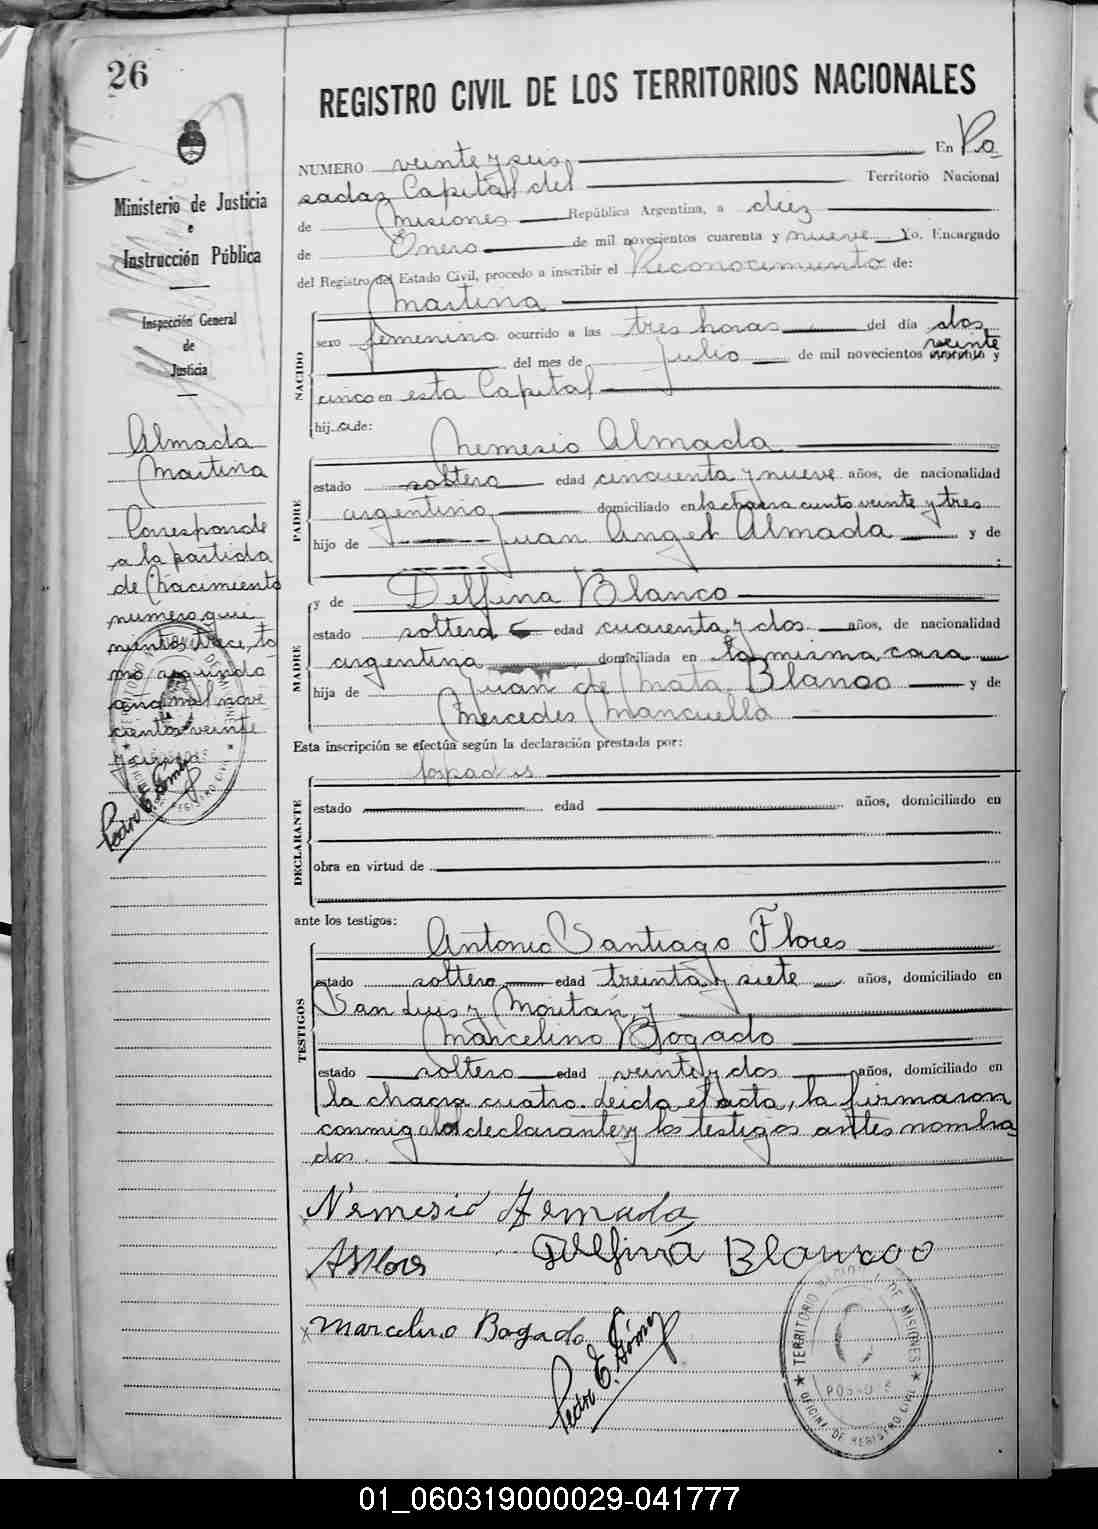 26
REGISTRO CIVIL DE LOS TERRITORIOS NACIONALES
NUMERO veinte y seis En Po
sadas Capital del Territorio Nacional
de Misiones República Argentina, a diez
de Enero de mil novecientos cuarenta y nueve Yo, Encargado
del Registro del Estado Civil, procedo a inscribir el Reconocimiento de:
Martina
NACIDO
sexo femenino ocurrido a las tres horas del día dos
del mes de julio de mil novecientos veinte y
cinco en esta Capital
hij a de:
Nemesio Almada
PADRE
estado soltero edad cincuenta y nueve años, de nacionalidad
argentino domiciliado en la chacra ciento veinte y tres
hijo de Juan Angel Almada y de
y de Delfina Blanco
MADRE
estado soltera edad cuarenta y dos años, de nacionalidad
argentina domiciliada en la misma casa
hija de Juan de Mata Blanco y de
Mercedes Mancuello
Esta inscripción se efectúa según la declaración prestada por:
los padres
DECLARANTE
estado edad años, domiciliado en
obra en virtud de
ante los testigos:
Antonio Santiago Flores
TESTIGOS
estado soltero edad treinta y siete años, domiciliado en
San Luis y y
Marcelino Bogado
estado soltero edad veinte y dos años, domiciliado en
la chacra cuatro. Leida el acta, la firmaron
conmigo los declarantes y los testigos antes nombra
dos.
Nemesio Almada
Delfina Blanco
AS Flores
Marcelino Bogado
Pedro E. Gómez
TERRITORIO NACIONAL DE MISIONES
POSADAS
OFICINA DE REGISTRO CIVIL
Ministerio de Justicia
e
Instrucción Pública
Inspección General
de
Justicia
Almada
Martina
Corresponde
a la partida
de Nacimiento
numero qui
nientos trece, to
mo segundo
año mil nove
cientos veinte
y cinco
Pedro E. Gómez
01_060319000029-041777